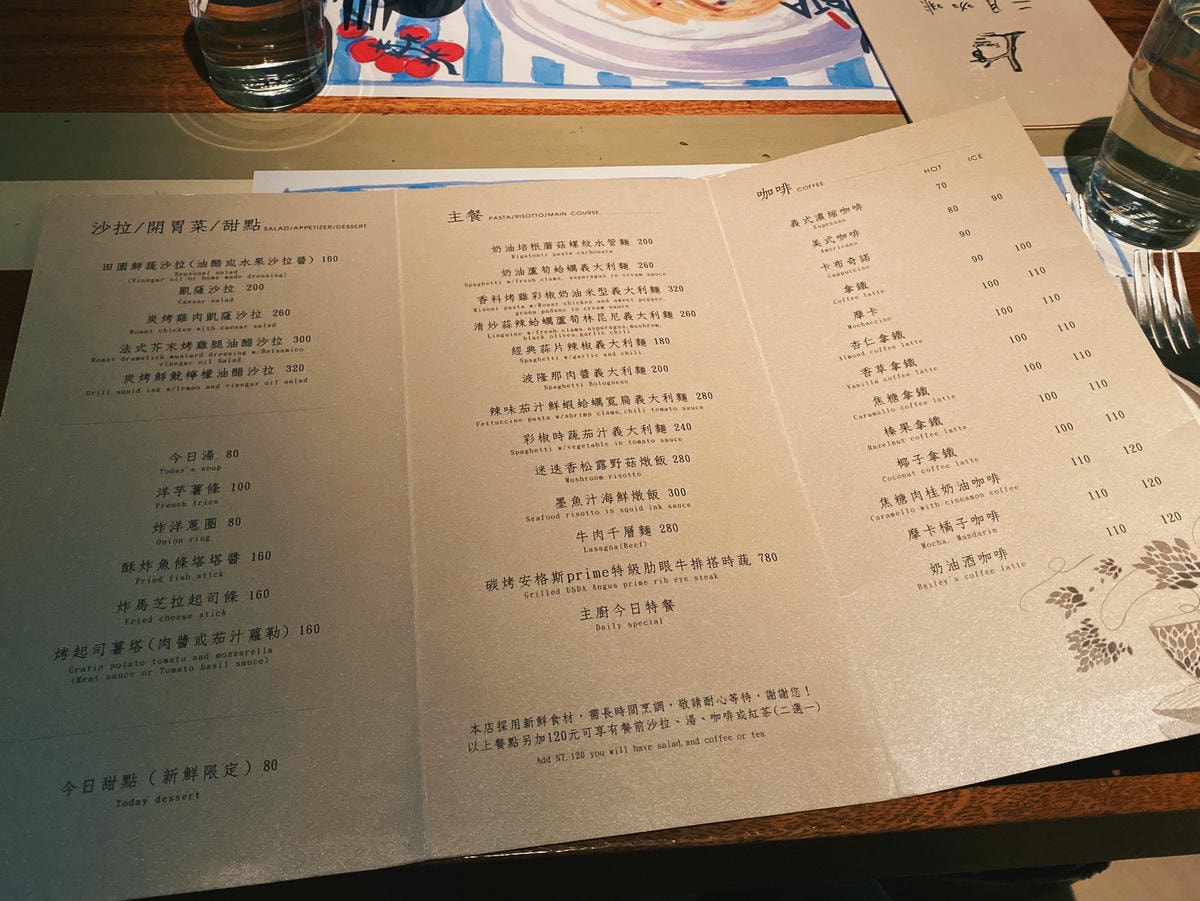 沙拉/開胃菜/甜點 SALAD/APPETIZER/DESSERT
田園鮮蔬沙拉(油醋或水果沙拉醬) 160
Seasonal salad
(Vinegar oil or home made dressing)
凱薩沙拉 200
Caesar salad
炭烤雞肉凱薩沙拉 260
Roast chicken with caesar salad
法式芥末烤雞腿油醋沙拉 300
Roast drumstick mustard dressing w/Balsamico
vinegar oil Salad
炭烤鮮魷檸檬油醋沙拉 320
Grill squid ink w/lemon and vinegar oil salad
今日湯 80
Today's soup
洋芋薯條 100
French fries
炸洋蔥圈 80
Onion ring
酥炸魚條塔塔醬 160
Fried fish stick
炸馬芝拉起司條 160
Fried cheese stick
烤起司薯塔(肉醬或茄汁蘿勒) 160
Gratin potato tomato and mozzarella
(Meat sauce or Tomato basil sauce)
今日甜點(新鮮限定) 80
Today dessert
主餐 PASTA/RISOTTO/MAIN COURSE
奶油培根蘑菇螺紋水管麵 200
Rigatonii pasta carbonara
奶油蘆筍蛤蠣義大利麵 260
Spaghetti w/fresh clams, asparagus in cream sauce
香料烤雞彩椒奶油米型義大利麵 320
Risoni pasta w/Roast chicken and sweet pepper,
grana padano in cream sauce
清炒蒜辣蛤蠣蘆筍林昆尼義大利麵 260
Linguine w/fresh clams,asparagus,mushrom,
black olives,garlic chili
經典蒜片辣椒義大利麵 180
Spaghetti w/garlic and chili
波隆那肉醬義大利麵 200
Spaghetti Bolognese
辣味茄汁鮮蝦蛤蠣寬扁義大利麵 280
Fettuccine pasta w/shrimp clams,chili tomato sauce
彩椒時蔬茄汁義大利麵 240
Spaghetti w/vegetable in tomato sauce
迷迭香松露野菇燉飯 280
Mushroom risotto
墨魚汁海鮮燉飯 300
Seafood risotto in squid ink sauce
牛肉千層麵 280
Lasagna(Beef)
碳烤安格斯prime特級肋眼牛排搭時蔬 780
Grilled USDA Angus prime rib eye steak
主廚今日特餐
Daily special
本店採用新鮮食材，需長時間烹調，敬請耐心等待，謝謝您！
以上餐點另加120元可享有餐前沙拉、湯、咖啡或紅茶(二選一)
Add NT.120 you will have salad,and coffee or tea
咖啡 COFFEE HOT ICE
義式濃縮咖啡 70
Espresso
美式咖啡 80 90
Americano
卡布奇諾 90
Cappuccino
拿鐵 90 100
Coffee latte
摩卡 100 110
Mochaccino
杏仁拿鐵 100 110
Almond coffee latte
香草拿鐵 100 110
Vanilla coffee latte
焦糖拿鐵 100 110
Caramello coffee latte
榛果拿鐵 100 110
Hazelnut coffee latte
椰子拿鐵 100 110
Coconut coffee latte
焦糖肉桂奶油咖啡 110 120
Caramello with cinnamon coffee
摩卡橘子咖啡 110 120
Mocha, Mandarin
奶油酒咖啡 110 120
Bailey's coffee latte
三月咖啡